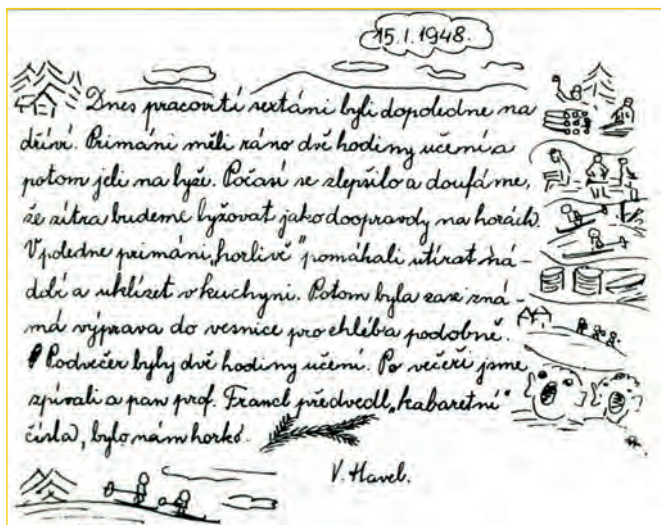 15.I.1948.
Dnes pracovití sextáni byli dopoledne na
dříví. Primáni měli ráno dvě hodiny učení a
potom jeli na lyže. Počasí se zlepšilo a doufáme,
že zítra budeme lyžovat jako doopravdy na horách.
V poledne primáni „horlivě" pomáhali utírat ná-
dobí a uklízet v kuchyni. Potom byla zase zná-
má výprava do vesnice pro chléb a podobně.
Podvečer byly dvě hodiny učení. Po večeři jsme
zpívali a pan prof. Francl předvedl „kabaretní"
čísla, bylo nám horko.
V. Havel.